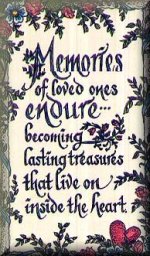 Memories
of loved ones
endure...
becoming
lasting treasures
that live on
inside the heart.